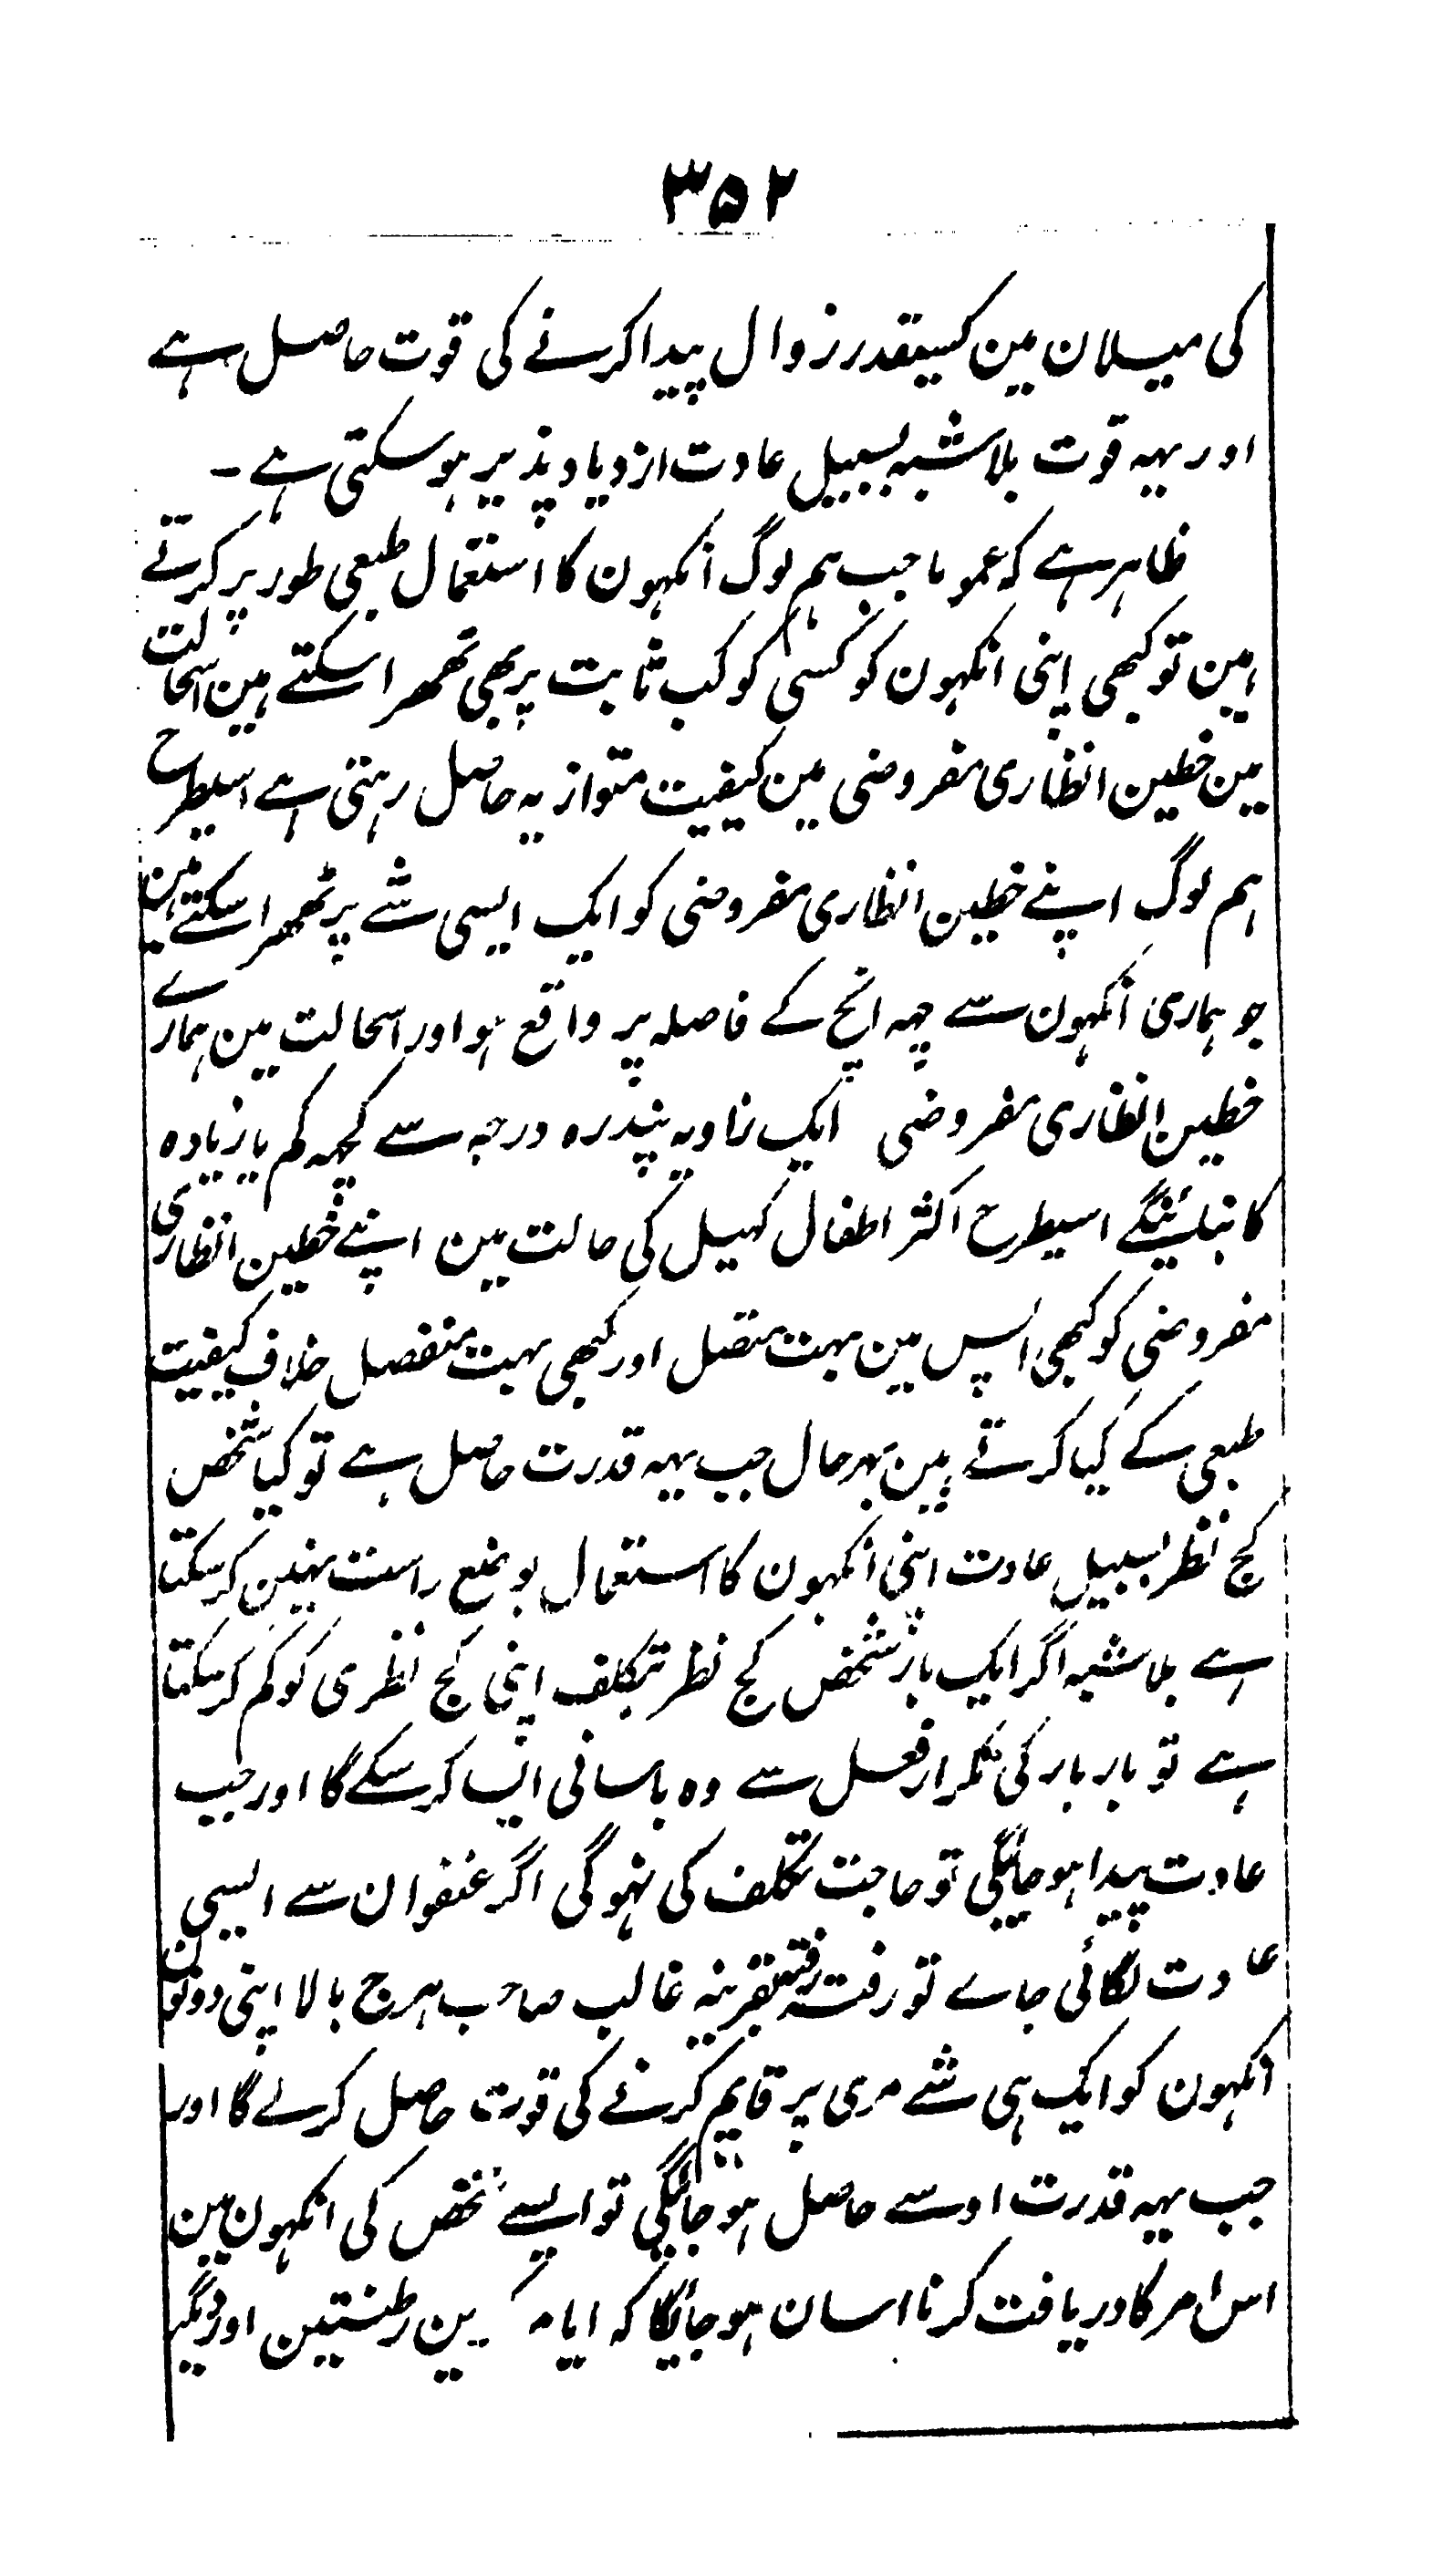 ۳۵۲
کی میلان مین کسیقدر زوال پیدا کرنے کی قوت حاصل ہے
اور یہہ قوت بلاشبہ بسبیل عادت ازدیاد پذیر ہو سکتی ہے ۔
ظاہر ہے کہ عموماً جب ہم لوگ انکہون کا استعمال طبعی طور پر کرتے
ہین تو کبھی اپنی انکہون کو کسی کوکب ثابت پر بھی ٹھہرا سکتے ہین اسحالت
مین خطین انظاری مفروضی مین کیفیت متوازیہ حاصل رہتی ہے اسیطرح
ہم لوگ اپنے خطین انظاری مفروضی کو ایک ایسی شے پر ٹھہرا سکتے ہین
جو ہماری انکہون سے چہہ انچ کے فاصلہ پر واقع ہو اور اسحالت مین ہمارے
خطین انظاری مفروضی ایک زاویہ پندرہ درجہ سے کچہہ کم یا زیادہ
کا بنائینگے اسیطرح اکثر اطفال کہیل کی حالت مین اپنے خطین انظاری
مفروضی کو کبھی اپس مین بہت متصل اور کبھی بہت منفصل خلاف کیفیت
طبعی کے کیا کرتے ہین بہرحال جب یہہ قدرت حاصل ہے تو کیا شخص
کج نظر بسبیل عادت اپنی انکہون کا استعمال بوضع راست نہین کر سکتا
ہے بلاشبہ اگر ایک بار شخص کج نظر بتکلف اپنی کج نظری کو کم کر سکتا
ہے تو بار بار کی تکرار فعل سے وہ باسانی ایسا کر سکے گا اور جب
عادت پیدا ہو جائیگی تو حاجت تکلف کی نہوگی اگر عنفوان سے ایسی
عادت لگائی جاے تو رفتہ رفتہ بقرینہ غالب صاحب ہرج بالا اپنی دونون
انکہون کو ایک ہی شے مری پر قایم کرنے کی قدرت حاصل کرلے گا اور
جب یہہ قدرت اوسے حاصل ہو جائیگی تو ایسے شخص کی انکہون مین
اس امر کا دریافت کرنا اسان ہو جائیگا کہ ایا رطنتین اور دیگر